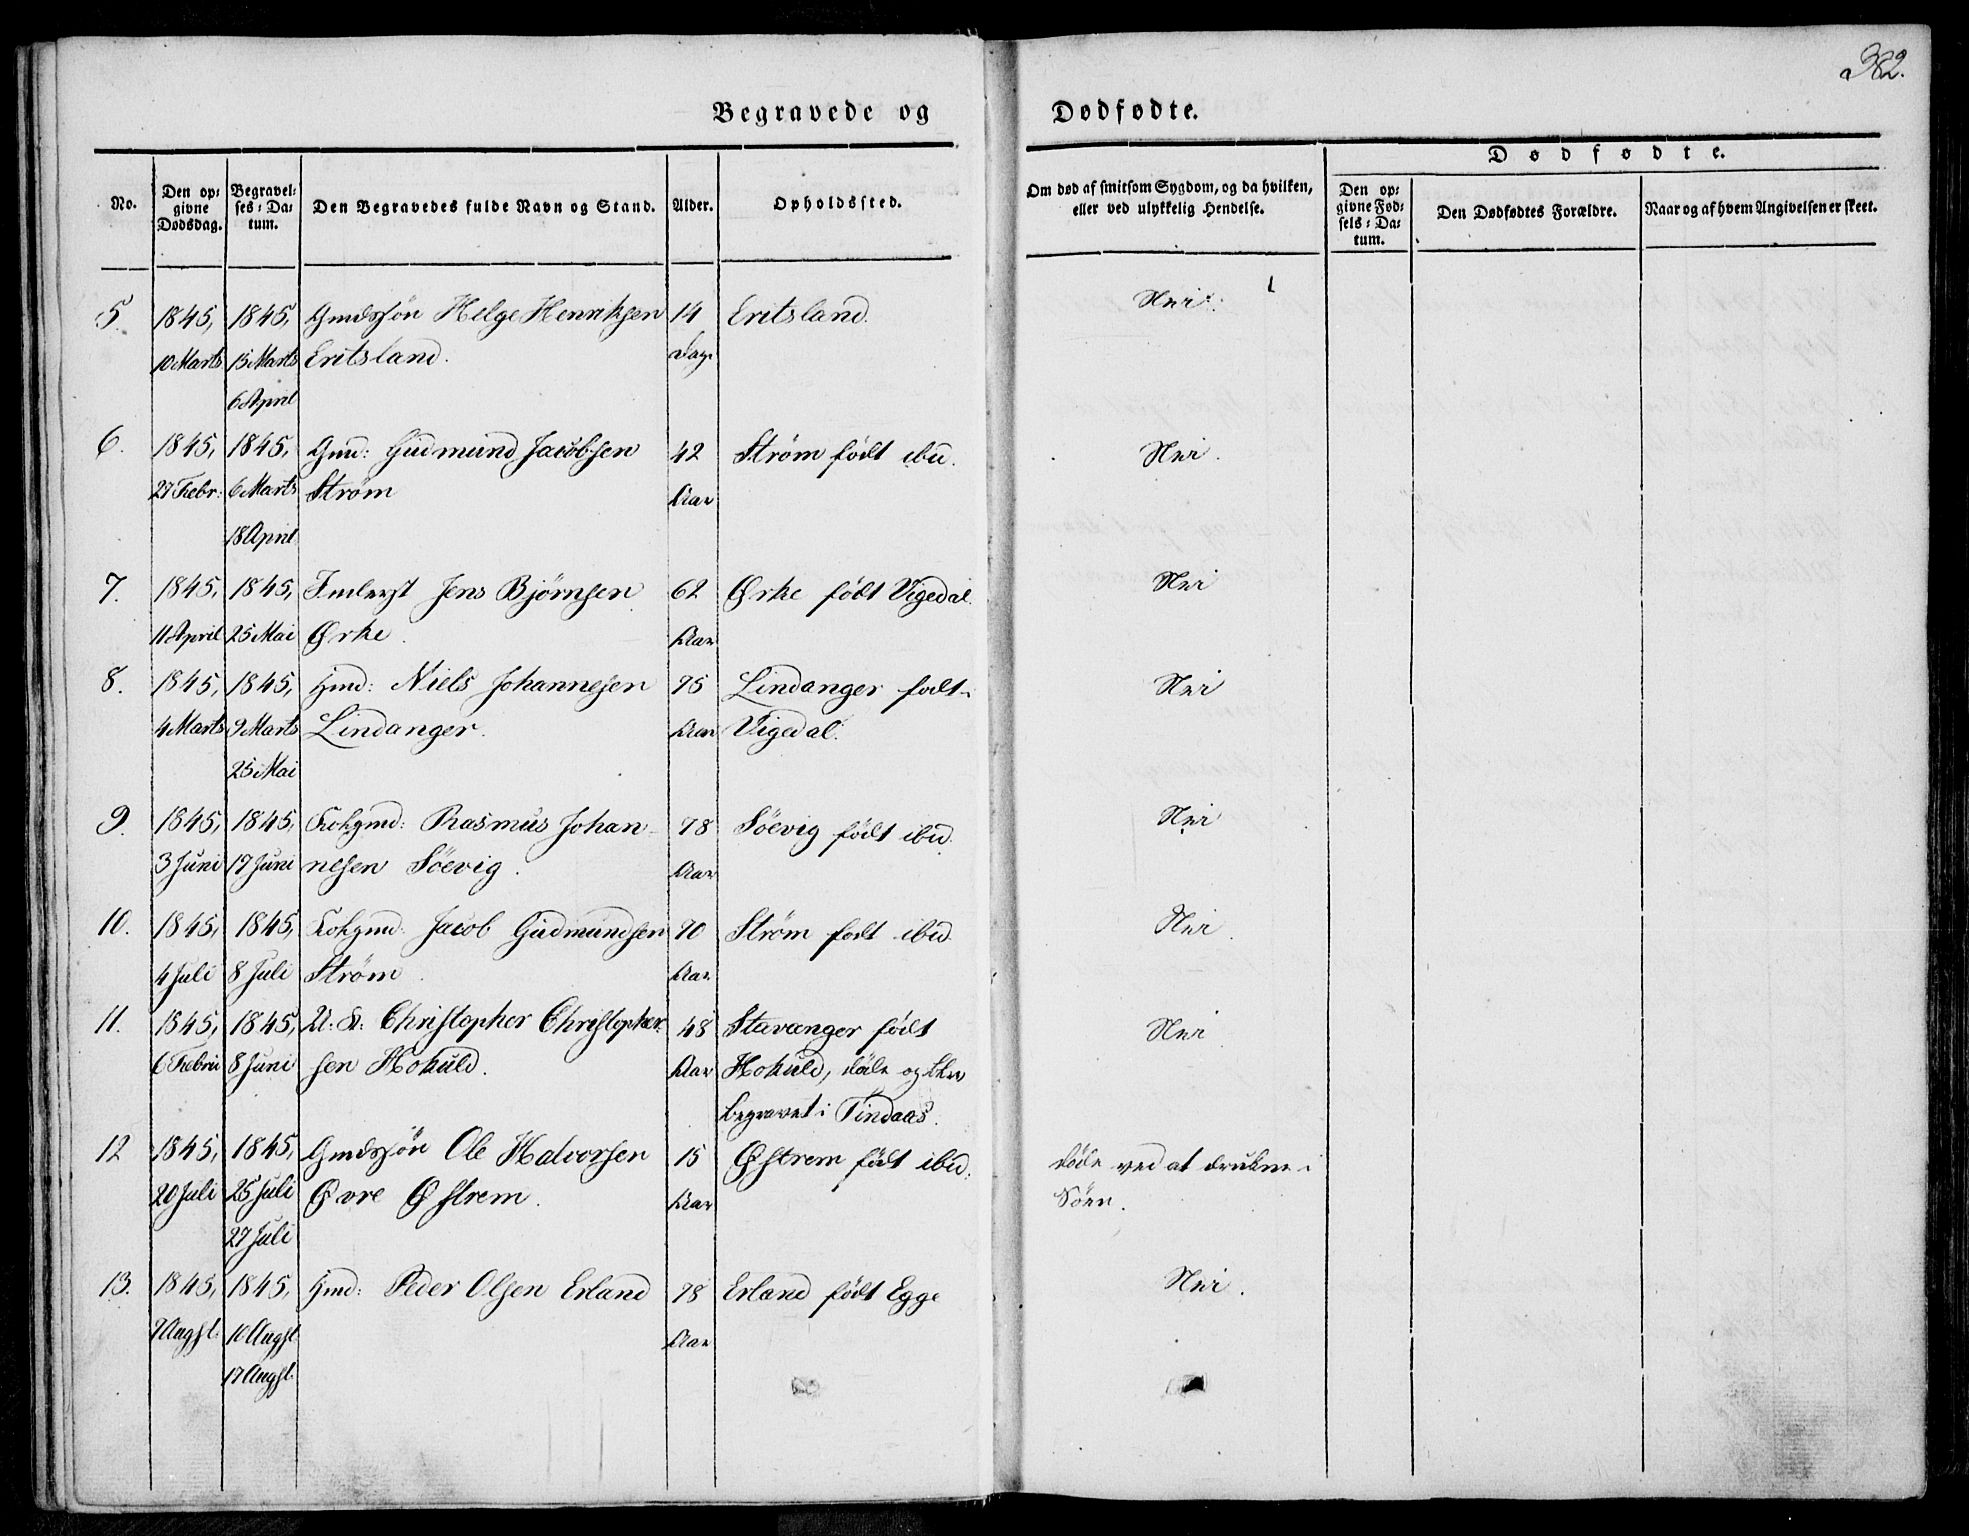 382.
Begravede og Dødfødte.
No.
Den op-
givne
Dødsdag.
Begravel-
ses-Da-
tum.
Den Begravedes fulde Navn og Stand.
Alder.
Opholdssted.
Om død af smitsom Sygdom, og da hvilken,
eller ved ulykkelig Hendelse.
Dødfødte.
Den op-
givne Fød-
sels-Da-
tum.
Den Dødfødtes Forældre.
Naar og af hvem Angivelsen er skeet.
5. 1845, 1845, Gmdssøn Helge Henriksen 14 Eritsland. Nei.
10 Marts 15 Marts Eritsland. Dage
6 April
6. 1845, 1845, Gmd: Gudmund Jacobsen 42 Strøm født ibid. Nei.
27 Febr: 6 Marts Strøm Aar
18 April
7. 1845, 1845, Inderst Jens Bjørnsen 62 Ørke født Vigedal. Nei
11 April 25 Mai Ørke. Aar
8. 1845, 1845, Hmd: Niels Johannesen 75 Lindanger født Nei
4 Marts 9 Marts Lindanger. Aar Vigedal.
25 Mai
9. 1845, 1845, Folgmd: Rasmus Johan- 78 Söevig født ibid. Nei
3 Juni 17 Juni nesen Söevig. Aar
10. 1845, 1845, Folgmd. Jacob Gudmundsen 70 Strøm født ibid Nei.
4 Juli 8 Juli Strøm. Aar
11. 1845, 1845, Christopher Christopher- 48 Stavanger født Nei.
6 Febru 8 Juni sen Hokuld. Aar Hokuld, døde og blev
begravet i Tindaas.
12 1845, 1845, Gmdssøn Ole Halvorsen 15 Østrem født ibid. døde ved at drukne i
20 Juli 25 Juli Øvre Østrem. Aar Söen.
27 Juli
13. 1845, 1845, Hmd: Peder Olsen Erland 78 Erland født Egge Nei.
7 Augst. 10 Augst Aar
17 Augst.